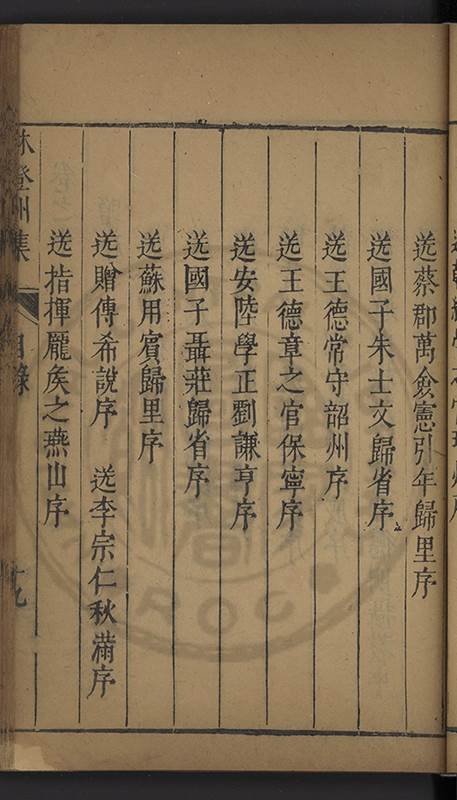 送蔡郡萬僉憲引年歸里序
送國子朱士文歸省序
送王德常守韶州序
送王德章之官保寧序
送安陸學正劉謙亨序
送國子聶莊歸省序
送蘇用賓歸里序
送贈傅希說序 送李宗仁秋滿序
送指揮龐矦之燕山序
林登州集 目錄 十九